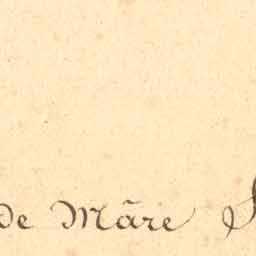 de Mãre